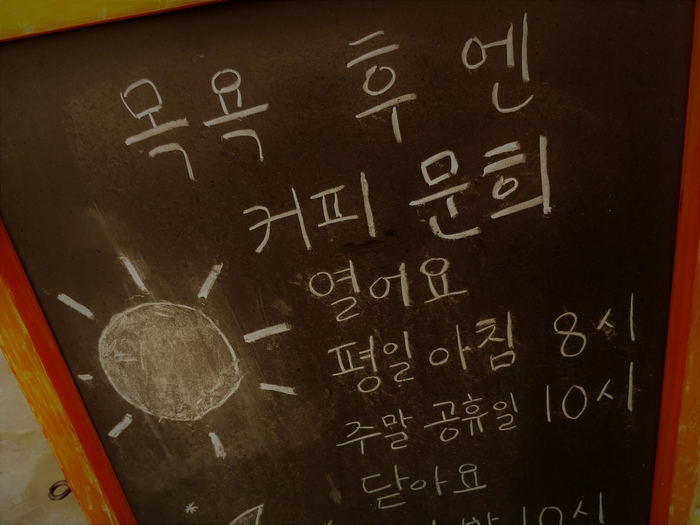 목욕 후 엔
커피 문희
열어요
평일 아침 8시
주말 공휴일 10시
닫아요
밤 10시